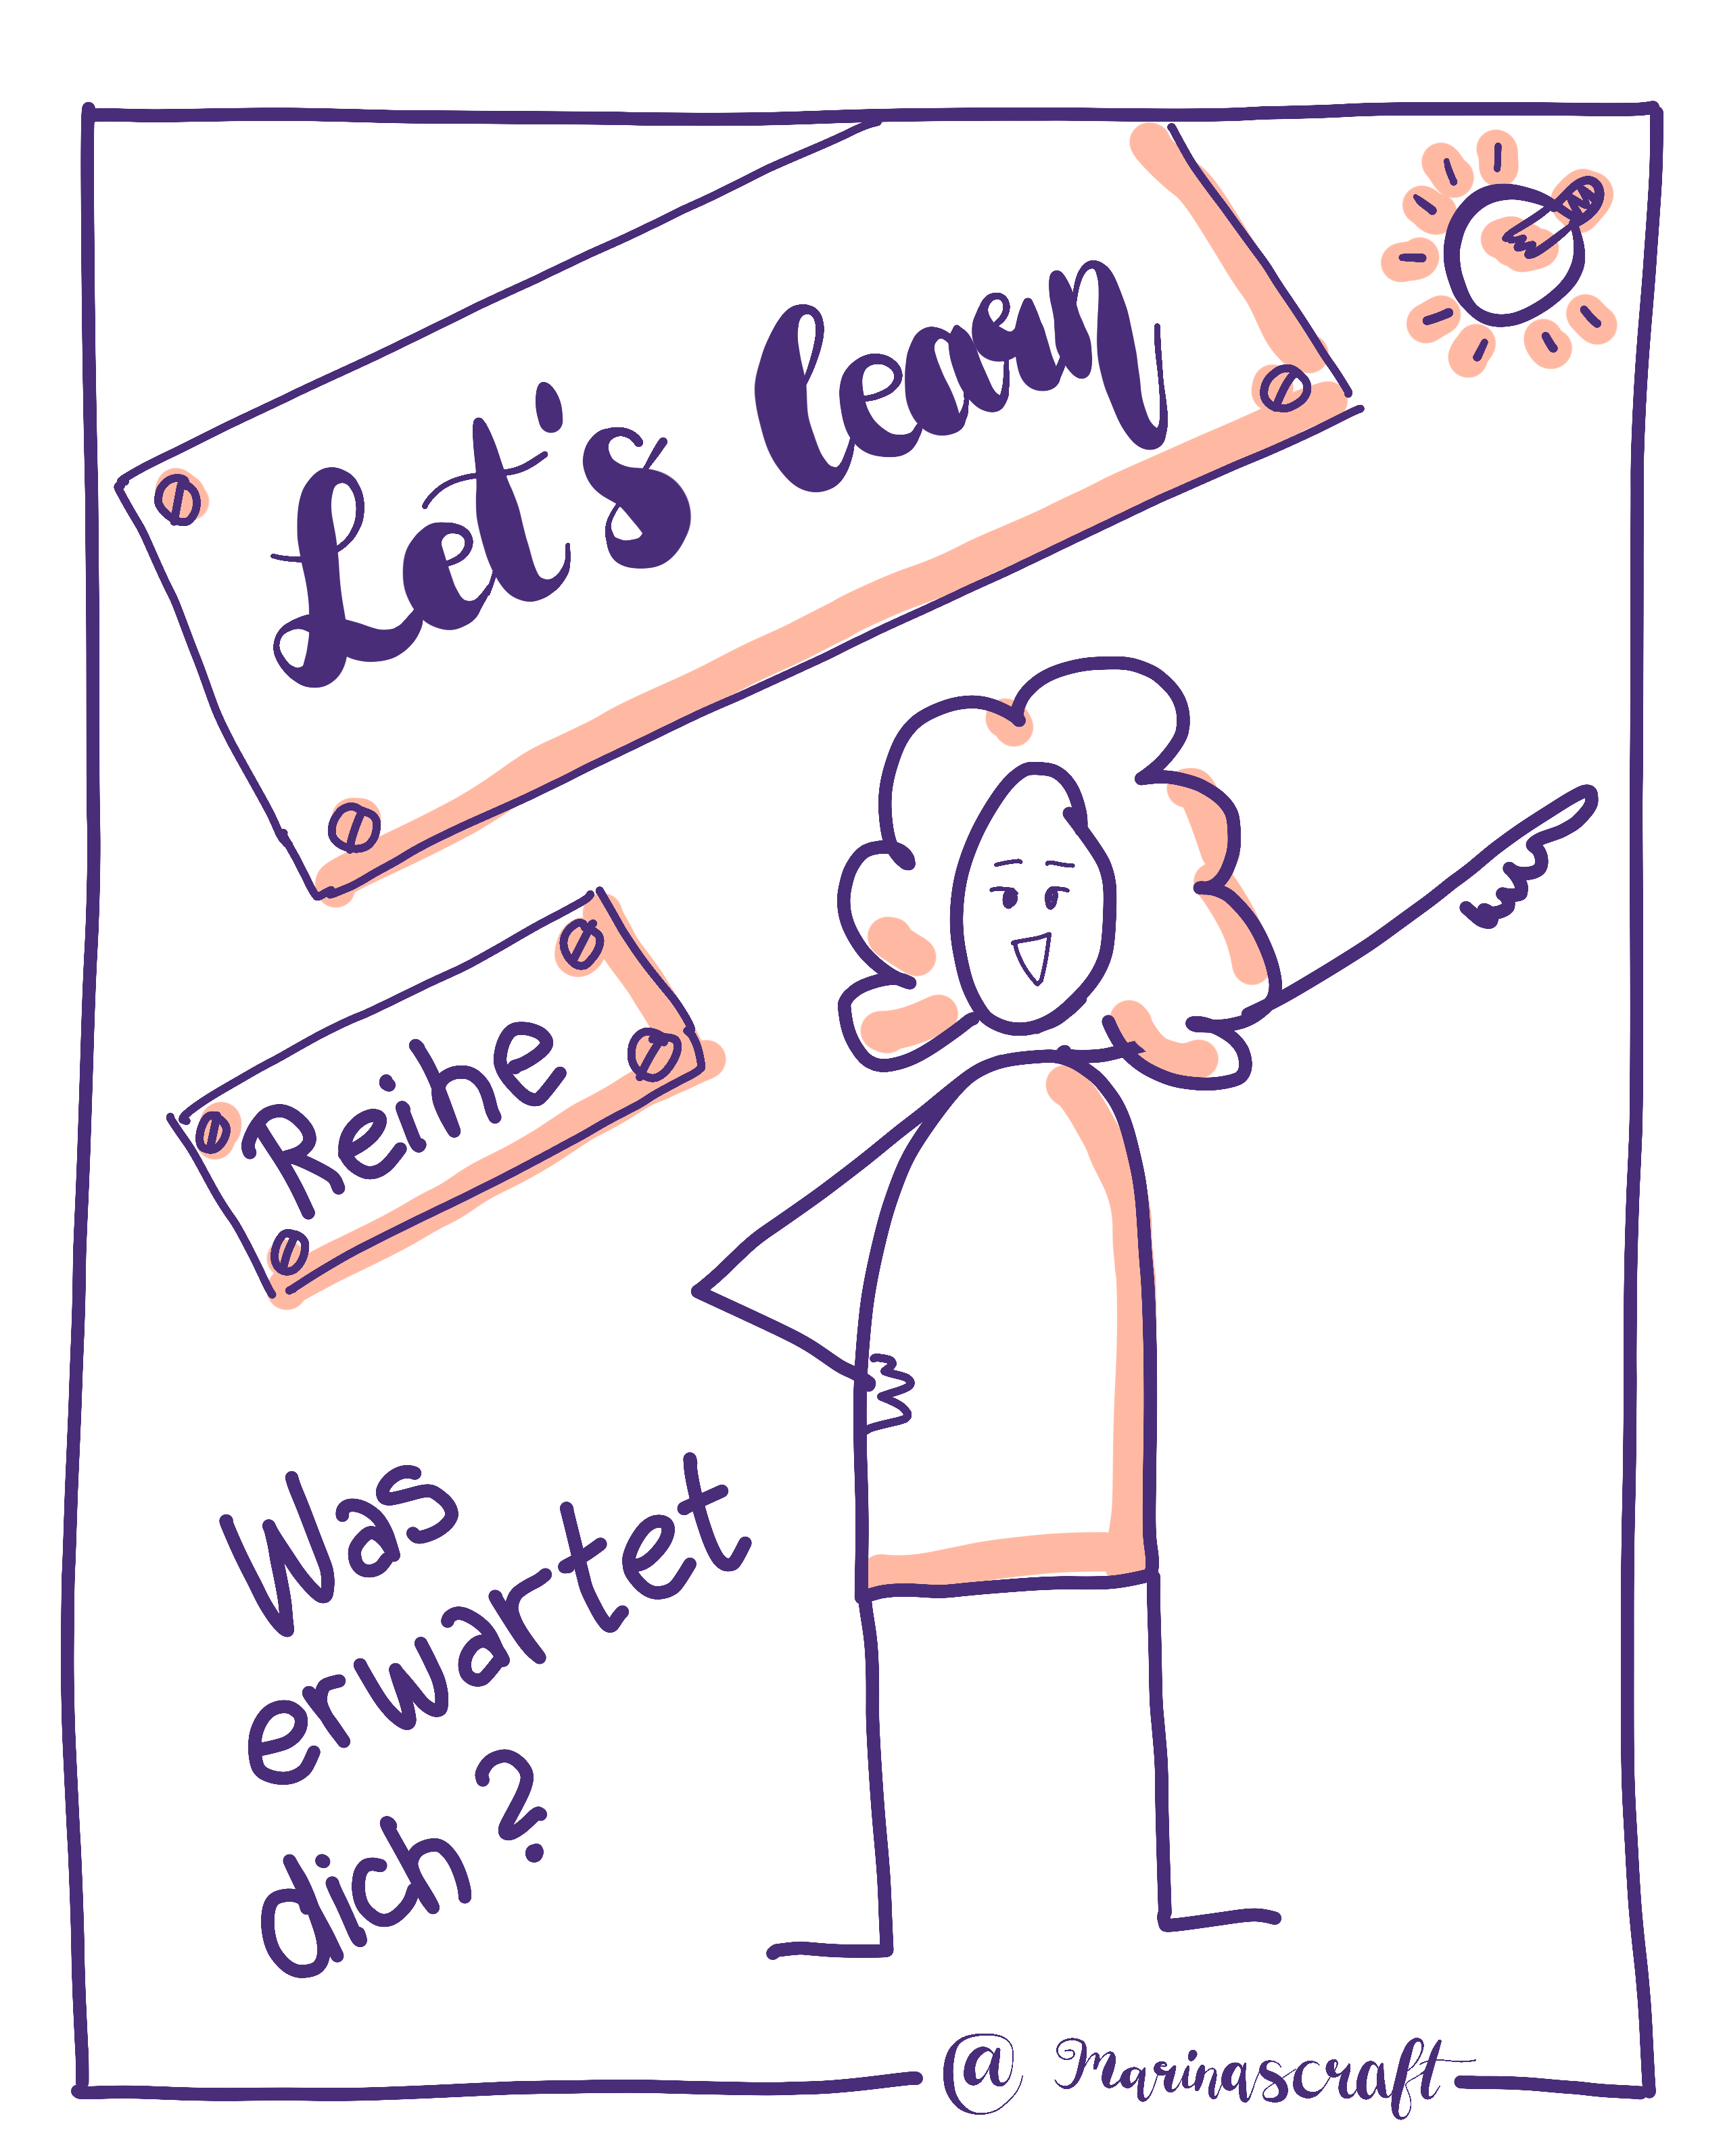 Let's learn
Reihe
Was
erwartet
dich?
@ Marinascraft